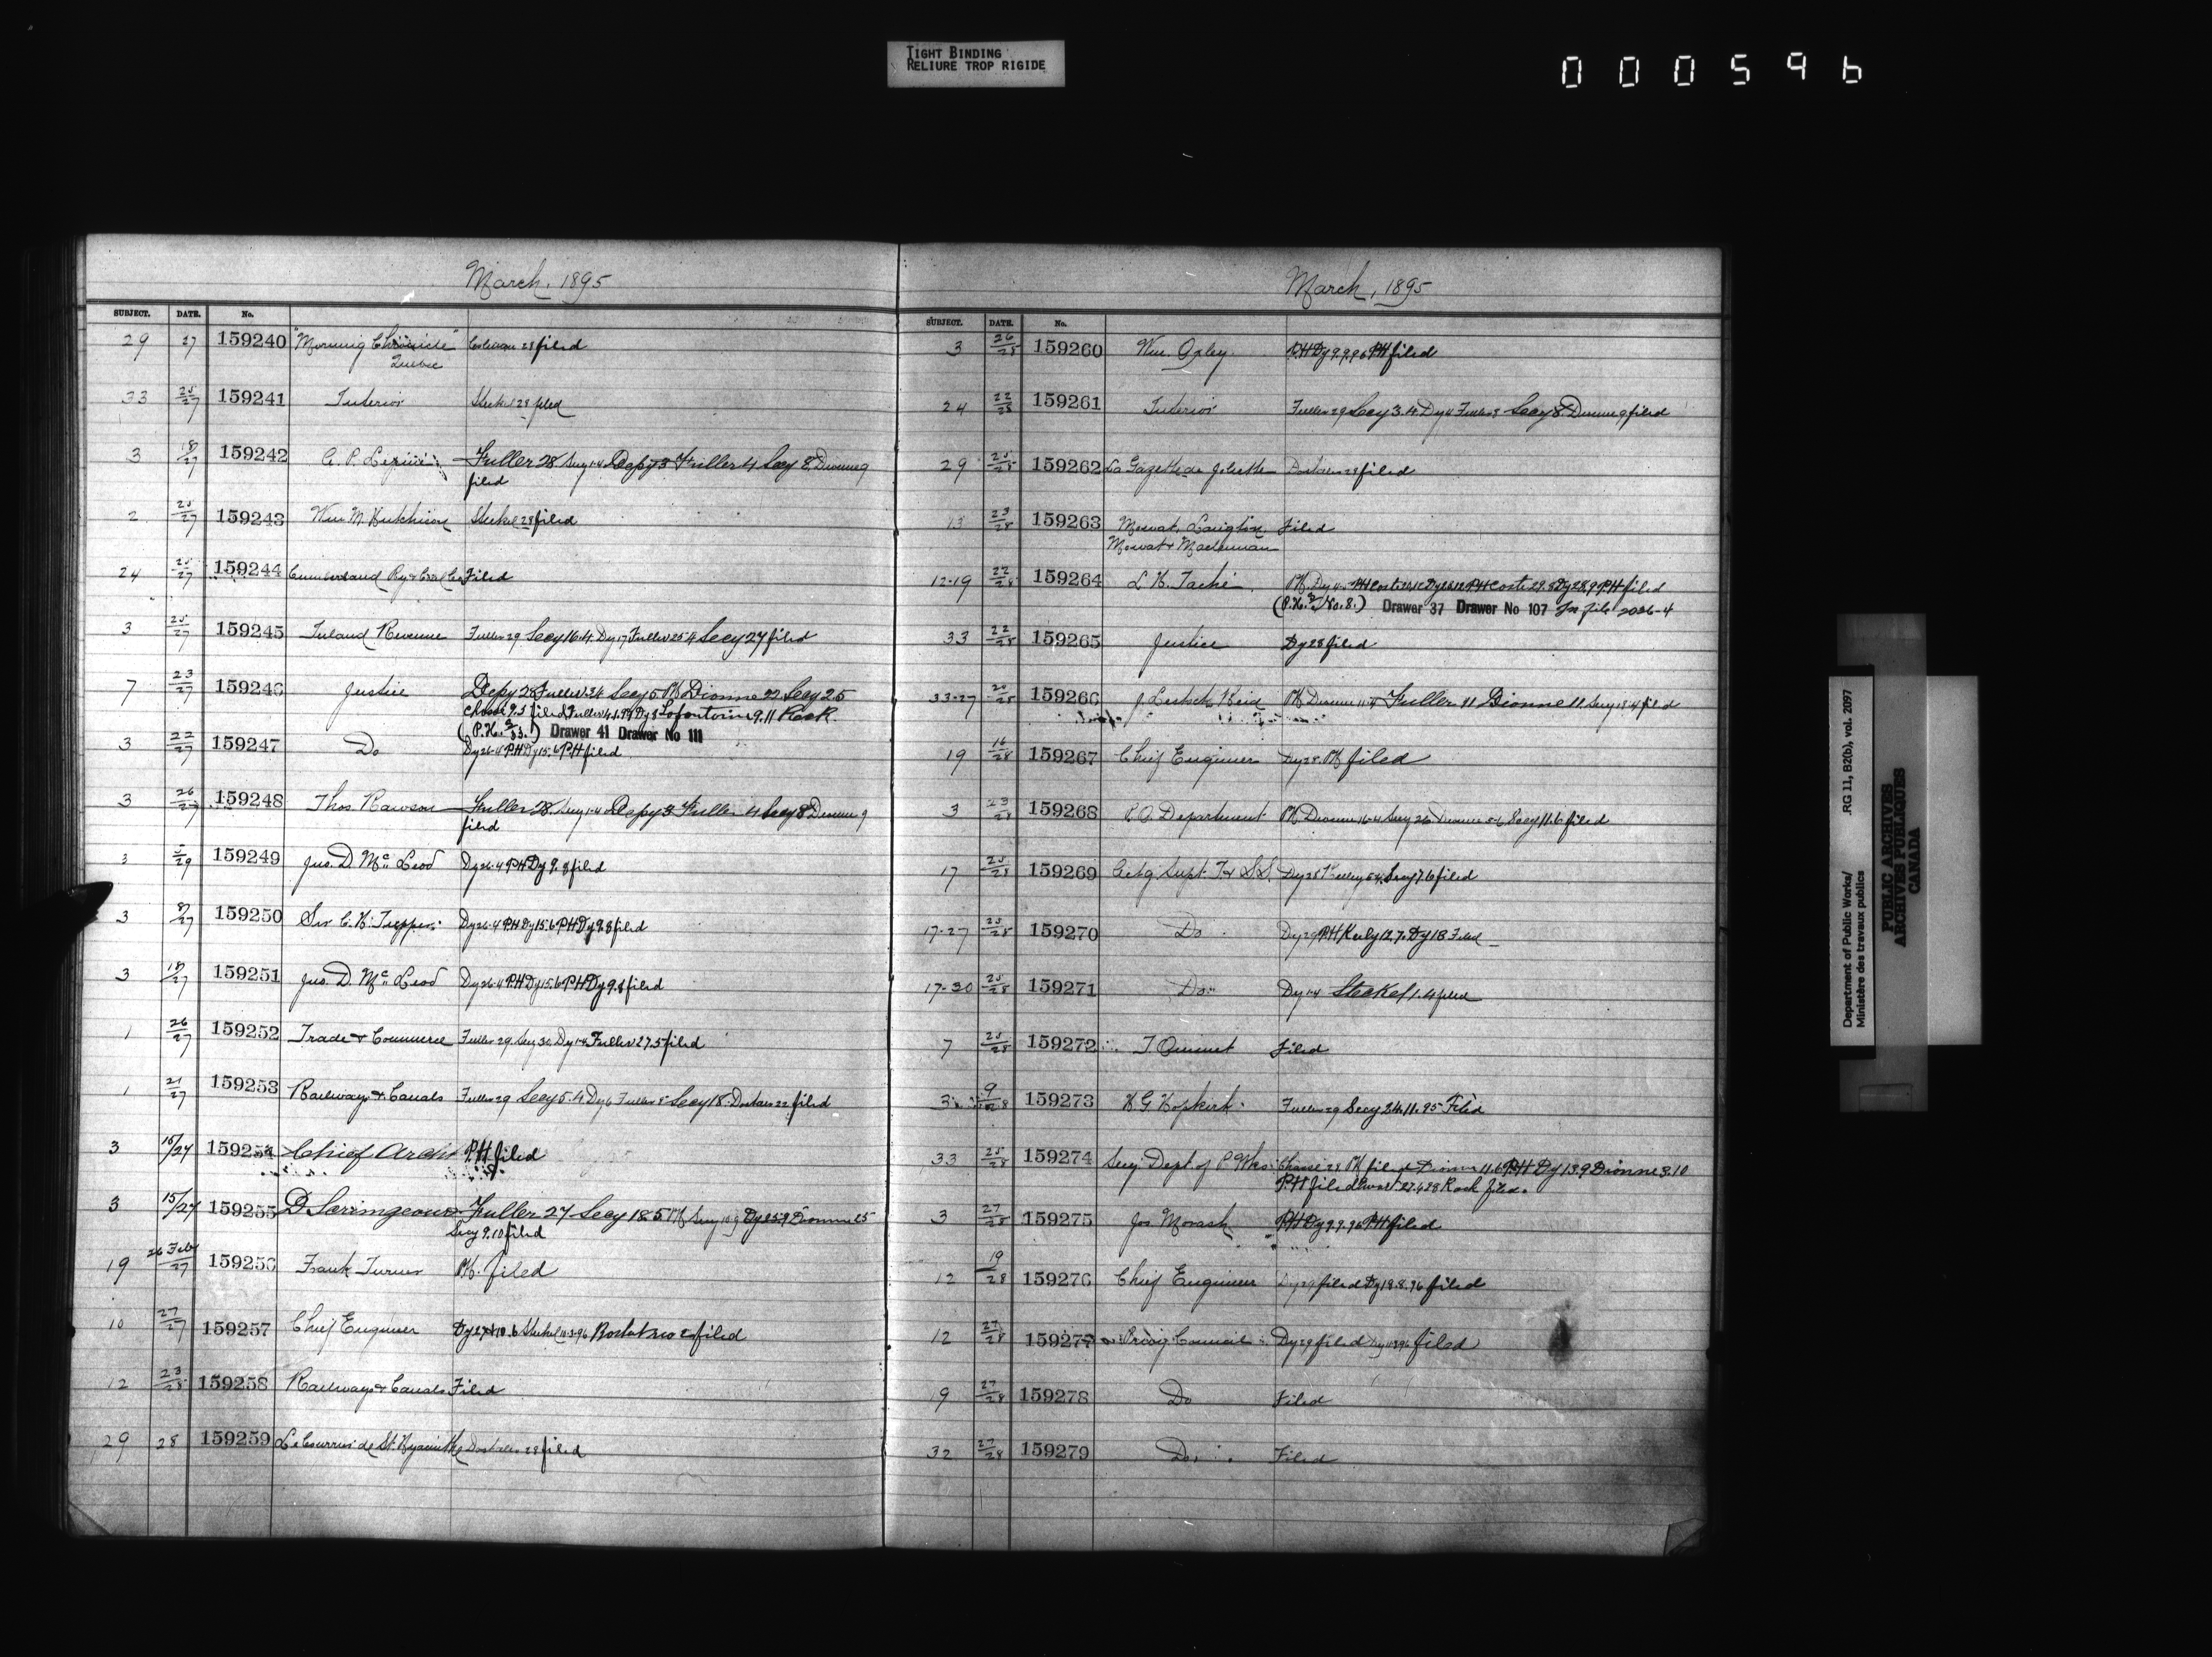 TIGHT BINDING
RELIURE TROP RIGIDE
000596
March, 1895
SUBJECT. DATE. No.
29 27 159240 "Morning Chronicle" 28 filed
Quebec
33 25/27 159241 Interior Steckel 28 filed
3 18/27 159242 Fuller 28 Secy 1-4 Depy 3 Fuller 4 Secy 8 Dionne 9
filed
2 25/27 159243 Wm M Hutchison Steckel 28 filed
24 25/27 159244 Cumberland Ry & Coal Co Filed
3 25/27 159245 Inland Revenue Fuller 29 Secy 16.4 Dy 17 Fuller 25.4 Secy 27 filed
7 23/27 159246 Justice Depy 28 Fuller Secy 5 PH Dionne 22 Secy 25
filed Fuller Dy 3 Lafontaine 9.11 Rook
(P.H. ) Drawer 41 Drawer No 111
3 22/27 159247 Do Dy 26-4 PH Dy 15.6 PH filed
3 26/27 159248 Thos. Rawson Fuller 28 Secy 1-4 Depy 3 Fuller 4 Secy 8 Dionne 9
filed
3 5/29 159249 Jas. D. McLeod Dy 26-4 PH Dy 9.8 filed
3 8/27 159250 Sir C. H. Tupper Dy 26-4 PH Dy 15.6 PH Dy 9.8 filed
3 18/27 159251 Jas. D. McLeod Dy 26-4 PH Dy 15.6 PH Dy 9.8 filed
1 26/27 159252 Trade & Commerce Fuller 29 Secy 30 Dy 1-4 Fuller 27.5 filed
1 21/27 159253 Railways & Canals Fuller 29 Secy 5.4 Dy 6 Fuller 8 Secy 18 Dostaler 22 filed
3 15/27 159254 Chief Archt P.H filed
3 15/27 159255 D Scrimgeour Fuller 27 Secy 18.5 PH Secy Dy 25.9 Dionne 25
Secy 9.10 filed
19 26 Feby/27 159256 Frank Turner PH. filed
10 27/27 159257 Chief Engineer Steckel filed
12 23/28 159258 Railways & Canals Filed
29 28 159259 Le Courrier de St. Hyacinthe Dostaler 28 filed
March, 1895
SUBJECT. DATE. No.
3 26/28 159260 Wm. Oxley PH Dy 9.9.96 PH filed
24 22/28 159261 Interior Fuller 29 Secy 3.4 Dy 4 Fuller 8 Secy 8 Dionne 9 filed
29 25/28 159262 La Gazette de Joliette Dostaler 28 filed
13 23/28 159263 Mowat, Langton, Filed
Mowat & Maclennan
12-19 22/28 159264 L. H. Taché PH filed
(P.H. No. 8.) Drawer 37 Drawer No 107 In file 2026-4
33 22/28 159265 Justice Dy 28 filed
33-27 159266 J. Reid PH Dionne Fuller 11 Dionne 11 Secy 18-4 filed
19 16/28 159267 Chief Engineer Dy 28 PH filed
3 23/28 159268 P.O. Department PH Dionne 16-4 Secy 26 Dionne 5-6 Secy 11.6 filed
17 25/28 159269 Actg Supt. T & S.S. Dy 28 Secy 7.6 filed
17-27 25/28 159270 Do Dy 29 PH Keely 12.7. Dy 18 Filed
17-30 25/28 159271 Do Dy 1-4 Steckel 1.4 filed
7 25/28 159272 T. Ouimet Filed
3 9/28 159273 H G Hopkirk Fuller 29 Secy 24.11.95 Filed
33 25/28 159274 Secy Dept of P Wks Chassé 28 PH filed Dionne 11.6 PH Dy 13.9 Dionne 3.10
P.H filed Rook filed.
3 27/28 159275 Jos Morash PH Dy 9.9.96 PH filed
12 19/28 159276 Chief Engineer Dy 29 filed Dy 18.8.96 filed
12 27/28 159277 Privy Council Dy 29 filed filed
19 27/28 159278 Do Filed
32 27/28 159279 Do Filed
Department of Public Works/
Ministère des travaux publics
RG 11, B2(b), vol. 2097
PUBLIC ARCHIVES
ARCHIVES PUBLIQUES
CANADA